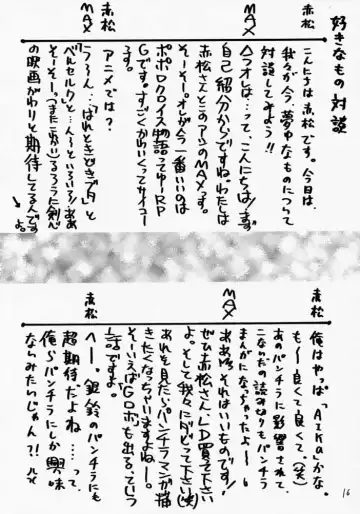 好きなもの対談
赤松
こんにちは赤松です。今日は、
我々が今、夢中なものについて
対談してみよう!!
MAX
ムラオ…って、こんにちは!まず
自己紹介からですね。わたしは
赤松さんとこのアシのMAXです。
そーそー。オレが今一番いいのは
ポポロクロイス物語ってゆーRP
Gです。すごくかわいくってサイコー
です。
赤松
アニメでは?
MAX
う〜ん…ぱれときどきブタと
「ベルセルク」と…ん〜といろいろ!ああ
そーそー。(またこかい)るろうに剣心
の映画がわりと期待してるんです
よ。
赤松
俺はやっぱ「AIKa」かな。
も〜良くて良くて。(笑)
あのパンチラに影響されて
こないだの読み切りもパンチラ
まんがになっちゃったよ〜
MAX
ああ!それはいいものです!
ぜひ赤松さん、LD買って下さい
よ。そして我々にダビって下さい(笑)
あれを見たらパンチラマンガ描
きたくなっちゃいますよねー。
そーいえば「Gロボ」も出るっていう
話ですよ。
赤松
へー。銀鈴のパンチラにも
超期待だよね……って、
俺らパンチラにしか興味
ないみたいじゃん?!
16